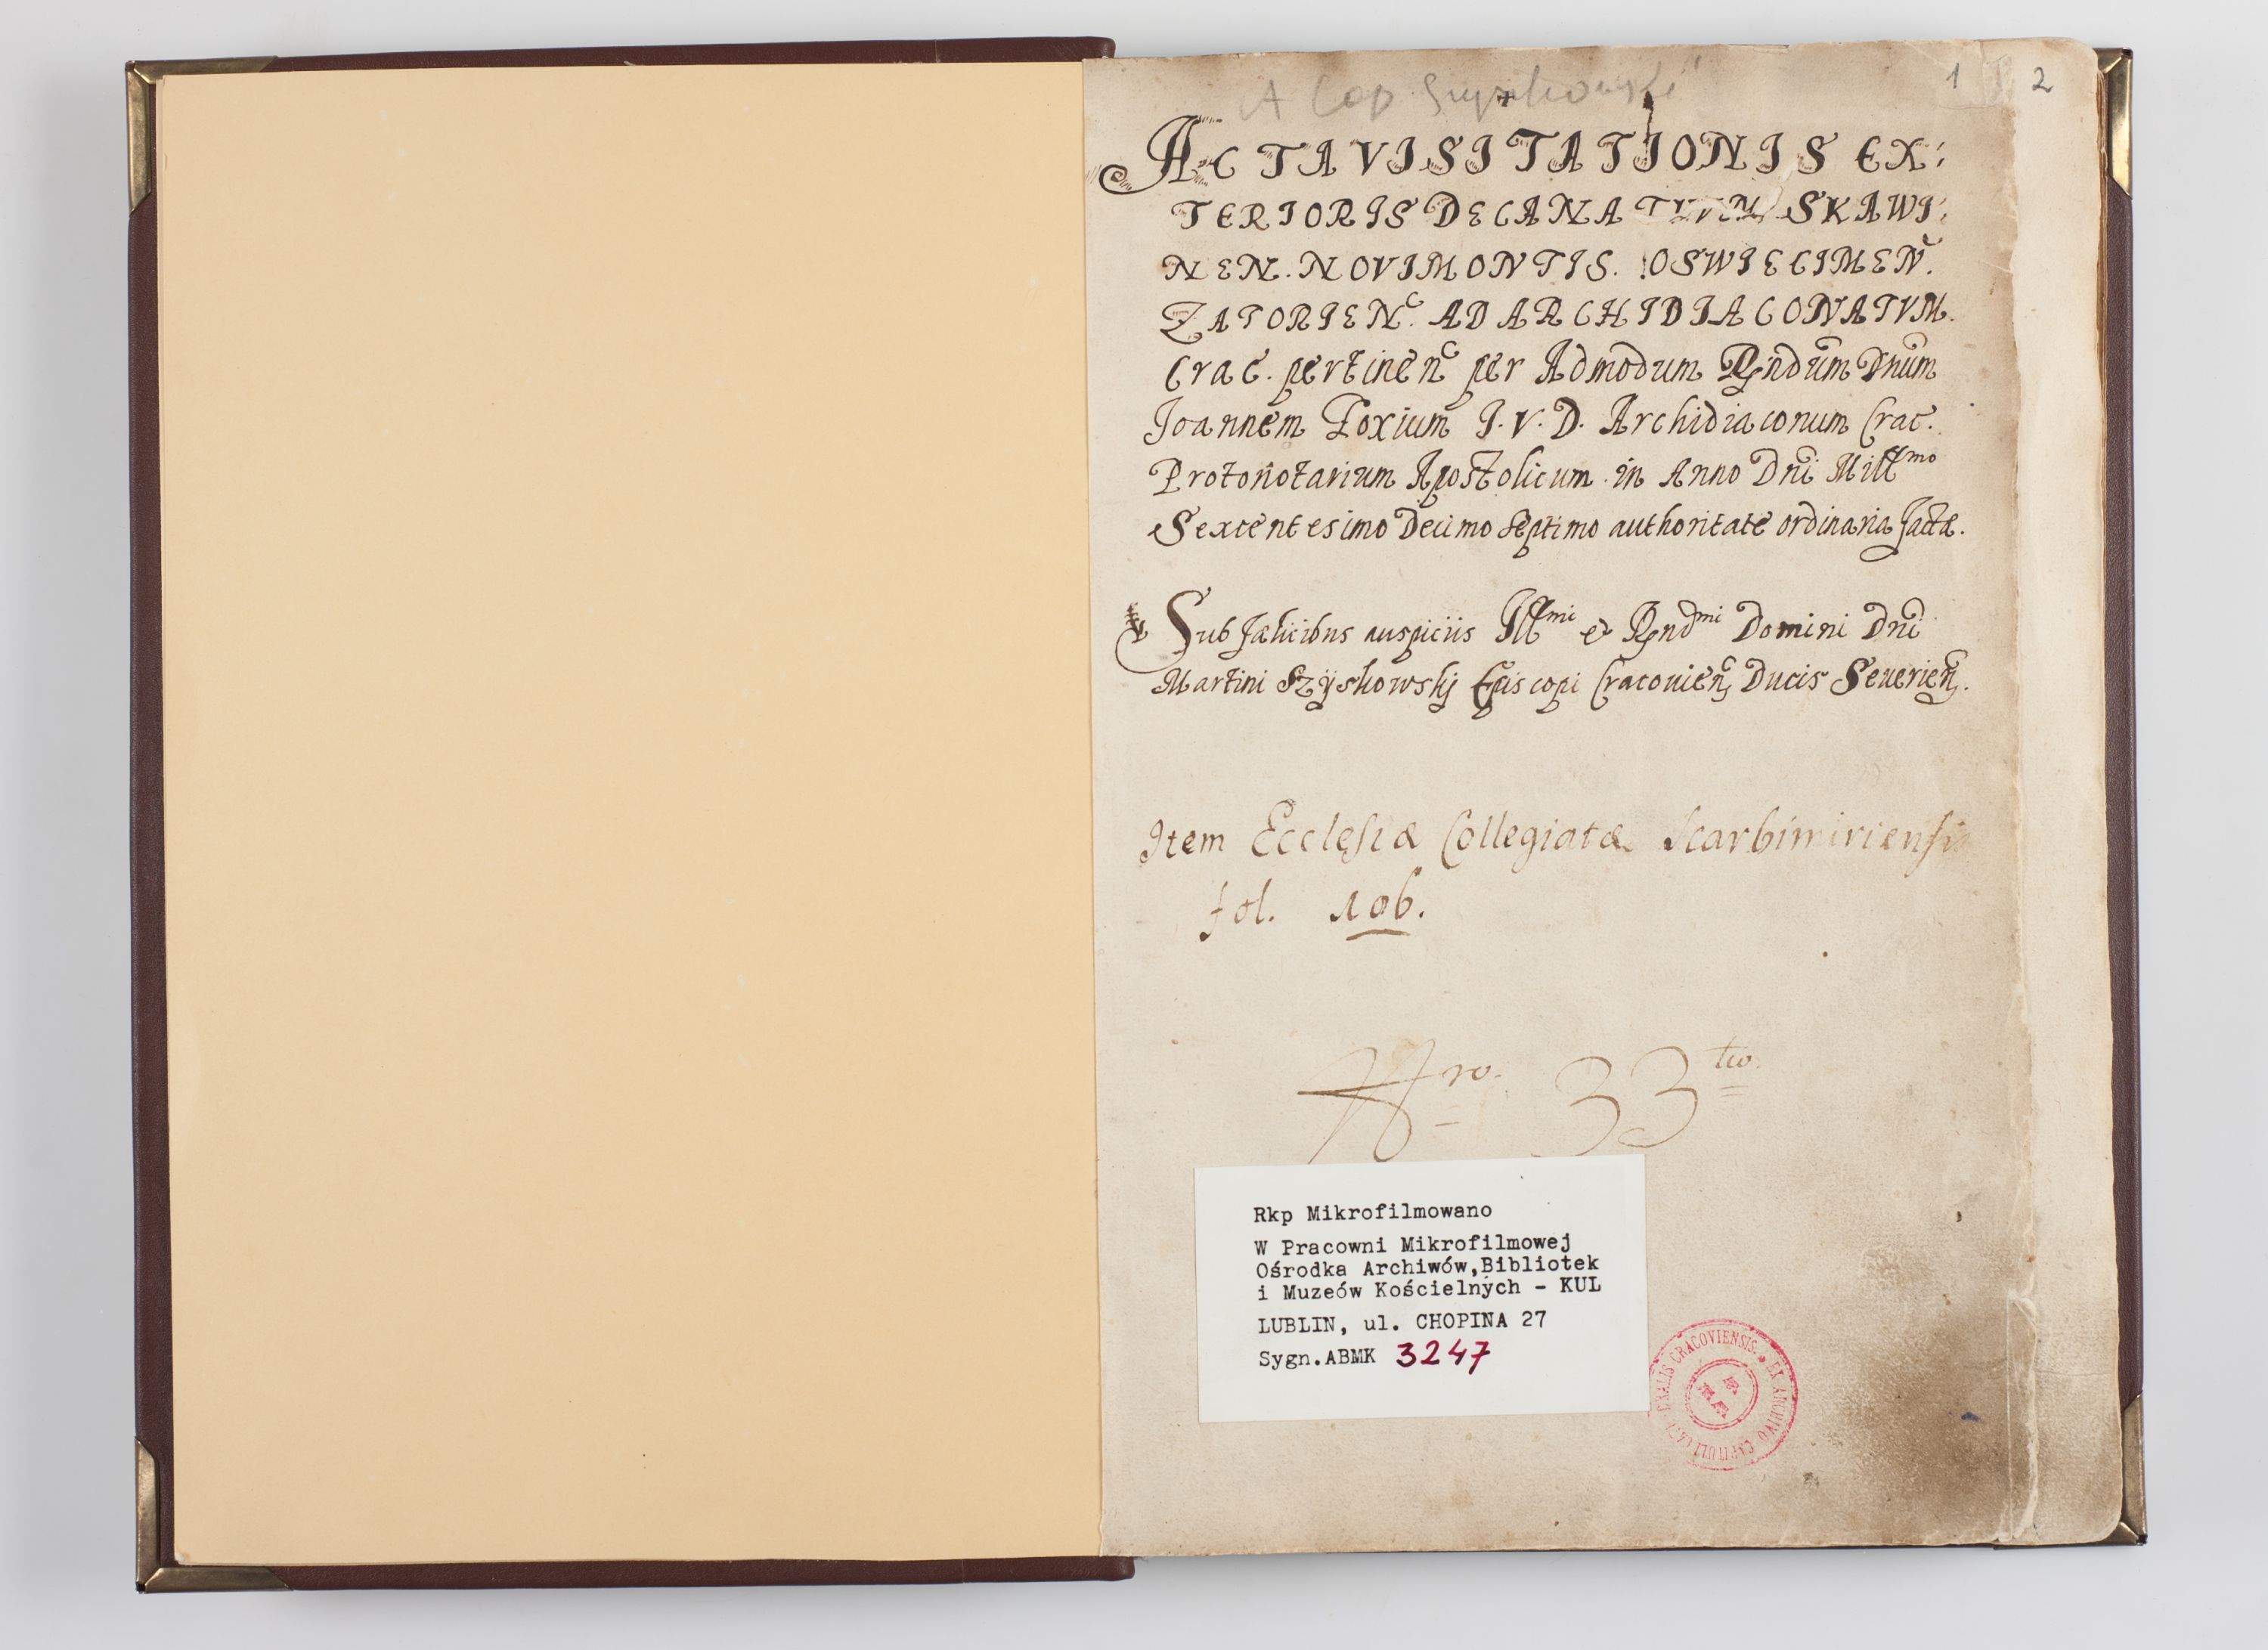 1 2
ACTA VISITATIONIS EX:
TERIORIS DECANATUUM SKAWI:
NEN. NOVIMONTIS. OSWIECIMEN.
ZATORIEN. AD ARCHIDIACONATVM.
Crac. pertinen per Admodum Rndum Dnum
Joannem Foxium J. V. D. Archidiaconum Crac.
Protonotarium Apostolicum in Anno Dni Mill̃mo
Sexcentesimo Decimo Septimo authoritate ordinaria facta.
Sub fælicibus auspiciis Illmi et Rndmi Domini Dni
Martini Szÿskowskÿ Episcopi Cracouien Ducis Seuerien.
Item Ecclęsiæ Collegiatæ Scarbimiriensis
fol. 106.
Nro. 33tio.
Rkp Mikrofilmowano
W Pracowni Mikrofilmowej
Ośrodka Archiwów,Bibliotek
i Muzeów Kościelnych - KUL
LUBLIN, ul. CHOPINA 27
Sygn.ABMK 3247
EX ARCHIVO CAPITULI CRACOVIENSIS